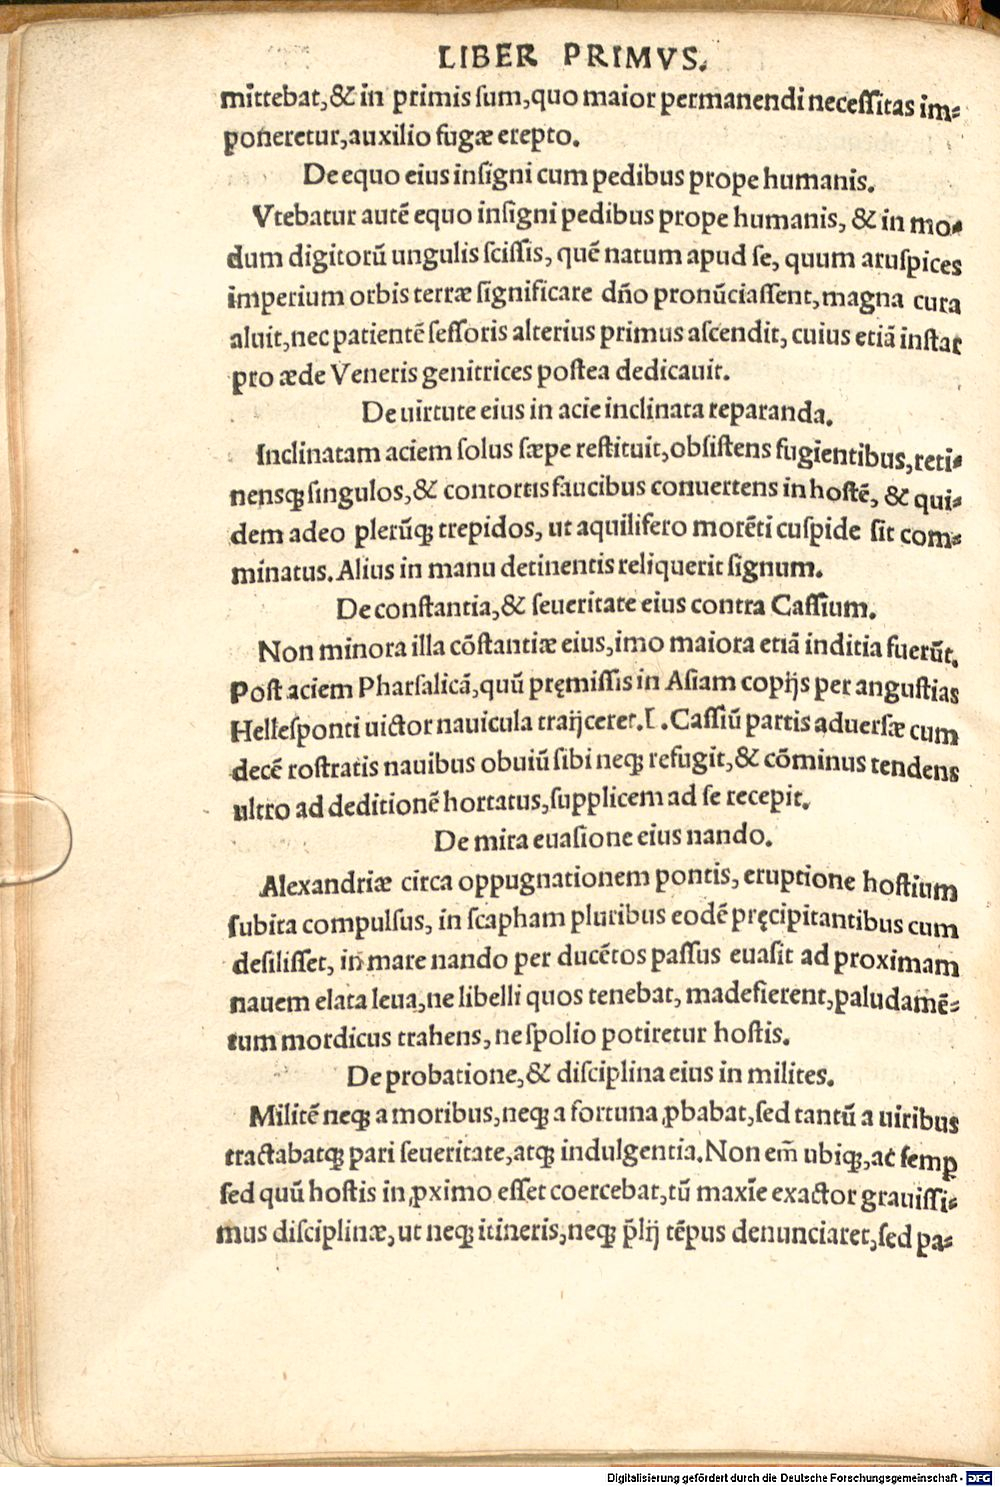 LIBER PRIMVS.
mittebat,& in primis sum,quo maior permanendi necessitas im-
poneretur,auxilio fugæ erepto.
De equo eius insigni cum pedibus prope humanis.
Vtebatur autē equo insigni pedibus prope humanis, & in mo-
dum digitorū ungulis scissis, quē natum apud se, quum aruspices
imperium orbis terræ significare dño pronūciassent,magna cura
aluit,nec patientē sessoris alterius primus ascendit, cuius etiā instar
pro æde Veneris genitrices postea dedicauit.
De uirtute eius in acie inclinata reparanda.
Inclinatam aciem solus sæpe restituit,obsistens fugientibus,reti-
nensq; singulos,& contortis faucibus conuertens in hostē, & qui-
dem adeo plerūq; trepidos, ut aquilifero morēti cuspide sit com-
minatus.Alius in manu detinentis reliquerit signum.
De constantia,& seueritate eius contra Cassium.
Non minora illa cōstantiæ eius,imo maiora etiā inditia fuerūt.
Post aciem Pharsalicā,quū pręmissis in Asiam copijs per angustias
Hellesponti uictor nauicula traijceret.L.Cassiū partis aduersæ cum
decē rostratis nauibus obuiū sibi neq; refugit,& cōminus tendens
ultro ad deditionē hortatus,supplicem ad se recepit.
De mira euasione eius nando.
Alexandriæ circa oppugnationem pontis, eruptione hostium
subita compulsus, in scapham pluribus eodē pręcipitantibus cum
desilisset, in mare nando per ducētos passus euasit ad proximam
nauem elata leua,ne libelli quos tenebat, madefierent,paludamē-
tum mordicus trahens,ne spolio potiretur hostis.
De probatione,& disciplina eius in milites.
Militē neq; a moribus,neq; a fortuna ꝓbabat,sed tantū a uiribus
tractabatq; pari seueritate,atq; indulgentia.Non em̄ ubiq;,ac semp
sed quū hostis in ꝓximo esset coercebat,tū maxīe exactor grauissi-
mus disciplinæ,ut neq; itineris,neq; p̄lij tēpus denunciaret,sed pa-
Digitalisierung gefördert durch die Deutsche Forschungsgemeinschaft - DFG